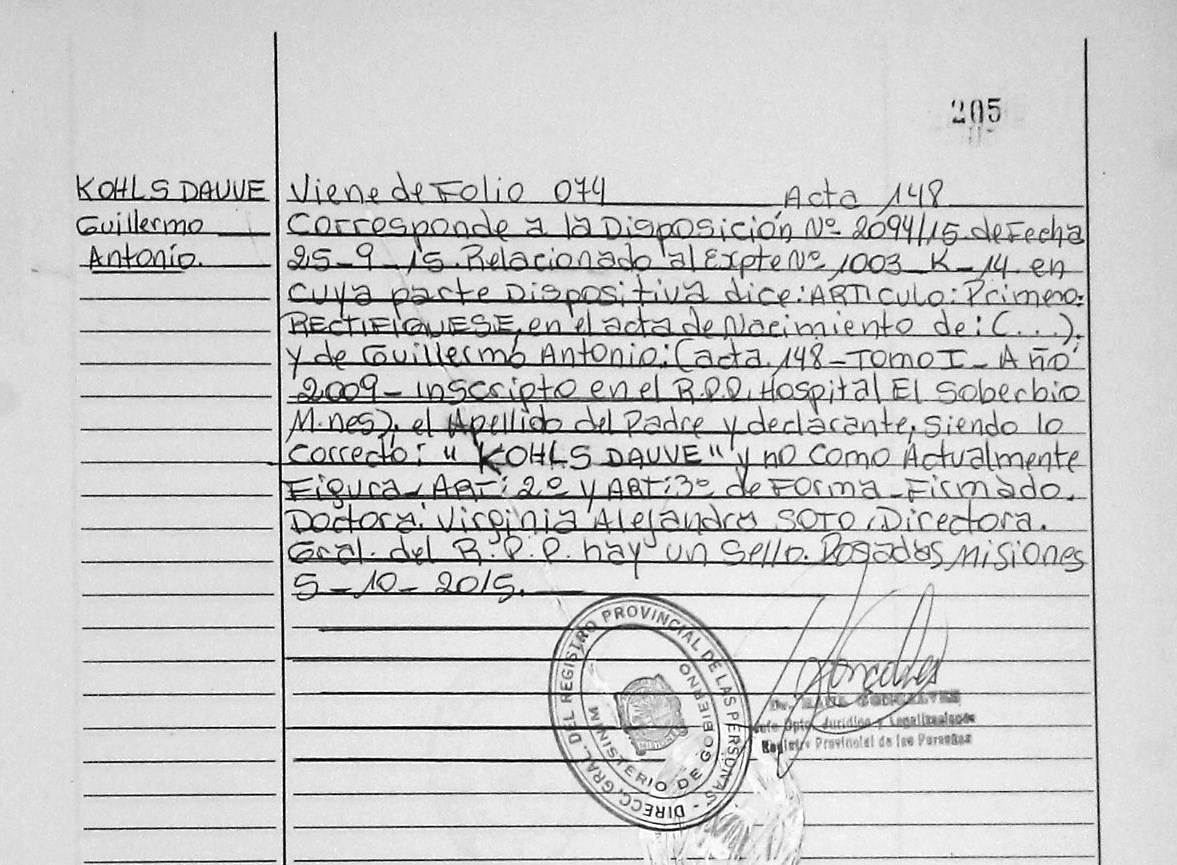 205
KOHLS DAUVE
Guillermo
Antonio.
Viene de Folio 074 Acta 148
Corresponde a la Disposición Nº 2094/15 de Fecha
25-9-15. Relacionado al Expte Nº 1003-K-14 en
cuya parte Dispositiva dice: ARTICULO: Primero:
RECTIFIQUESE, en el acta de Nacimiento de: (...),
y de Guillermo Antonio: (acta 148-TOMO I-Año
2009-inscripto en el R.P.P. Hospital El Soberbio
M.nes), el Apellido del Padre y declarante, siendo lo
correcto: "KOHLS DAUVE" y no como Actualmente
Figura-ART: 2º y ART: 3º de Forma-Firmado.
Doctora: Virginia Alejandra SOTO, Directora.
Gral. del R.P.P. hay un Sello. Posadas, Misiones
5-10-2015.
DIRECC. GRAL. DEL REGISTRO PROVINCIAL DE LAS PERSONAS
MINISTERIO DE GOBIERNO
GONCALVES
Jefe Dpto. Jurídico y Legalizaciones
Registro Provincial de las Personas